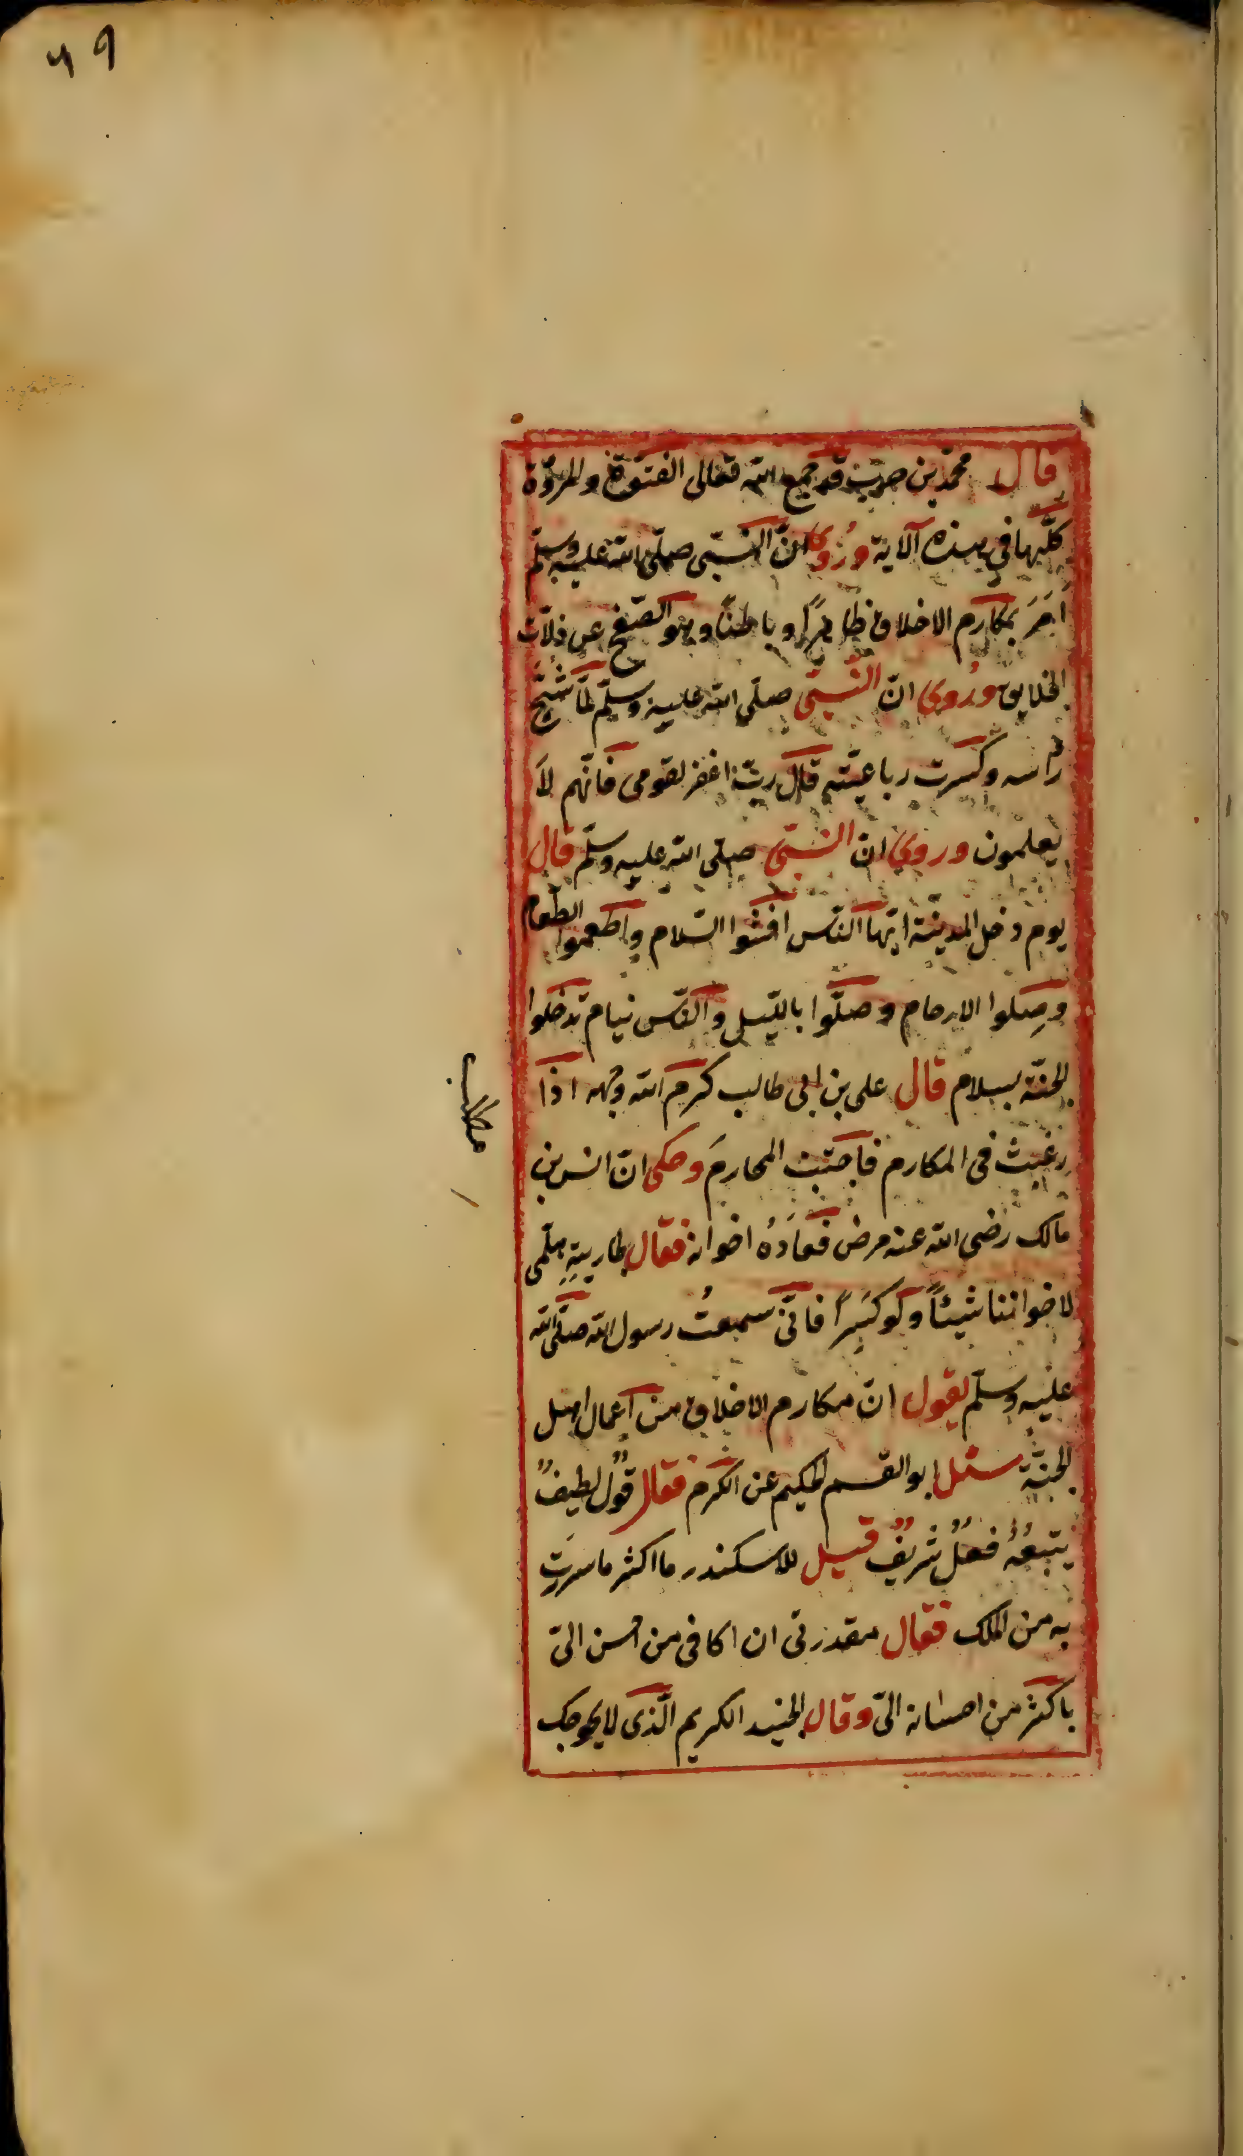 ٤٩
قال محمد بن حرب قد جمع الله تعالى الفتوّة والمروّة
كلّها في هذه الآية وروي انّ النّبيّ صلّى الله عليه وسلّم
اَمَرَ بمكارم الاخلاق ظاهرًا وباطنًا وهو الصّفح عن زلّات
الخلايق ورُوي انّ النّبيّ صلّى الله عليه وسلّم لمّا شُجّ
رأسه وكسرت رباعيّته قال ربّ اغفر لقومى فانّهم لَا
يعلمون وروي انّ النّبيّ صلّى الله عليه وسلّم قال
يوم دخل المدينة ايّها النّاس افشوا السّلام واطعموا الطّعام
وصِلوا الارحام وصلّوا باللّيل والنّاس نيام تدخلوا
الجنّة بسلام قال على بن ابى طالب كرم الله وجهه اذا
رغبت فى المكارم فاجتنب المحارمَ وحكى انّ انس بن
مالك رضى الله عنه مرض فعَادَهُ اخوانه فقال لجاريتِهِ هلمّى
لاخواننا شيئاً ولو كسَراً فانّى سمعتُ رسول الله صلّى الله
عليه وسلّم يقول انّ مكارم الاخلاق من اعمال اهل
الجنّة سئل ابو القسم الحكيم عن الكرم فقال قولٌ لطيفٌ
يتبعُهُ فعلٌ شريفٌ قيل للاسكندر ما اكثر ما سررت
به من الملك فقال مقدرتى ان اكافى من احسن الىّ
باكثر من احسانه الىّ وقال الجنيد الكريم الّذى لا يحوجك
مطلب